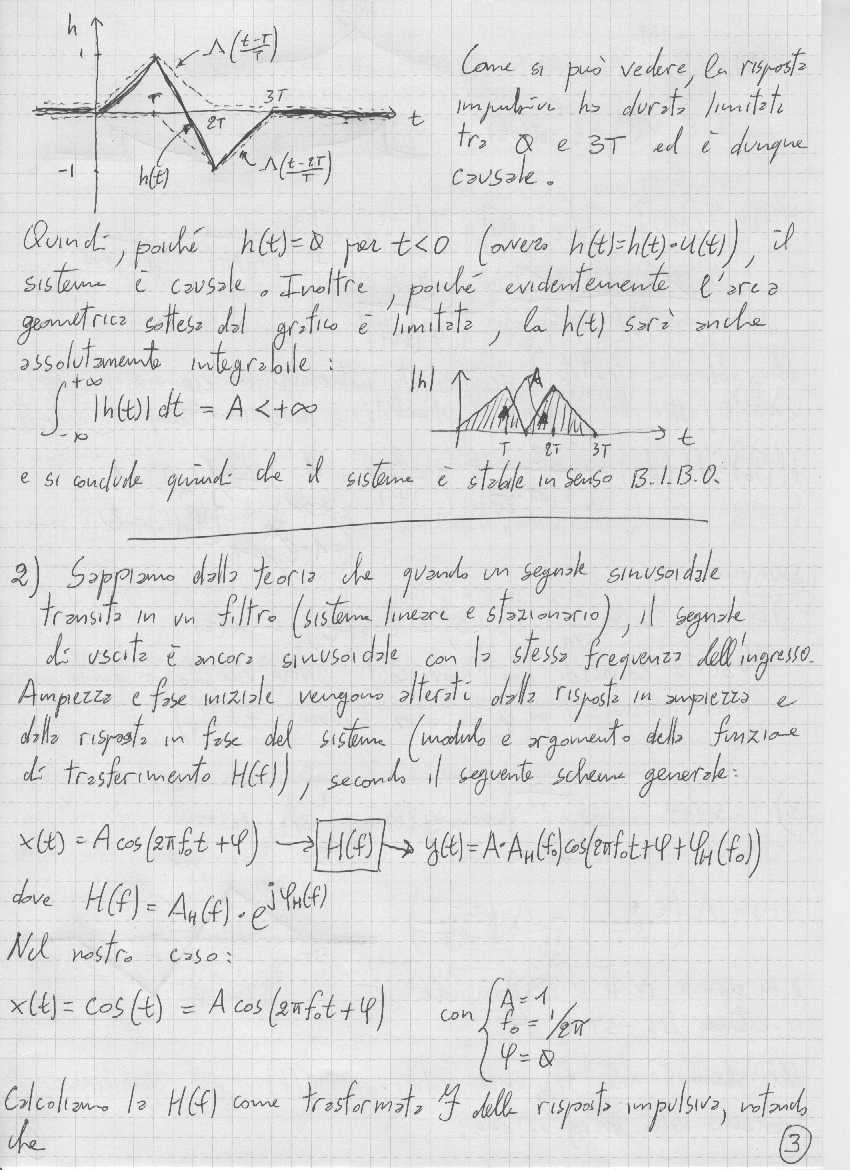 h
1
Λ(t-T/T)
T
2T
3T
t
-1
h(t)
Λ(t-2T/T)
Come si può vedere, la risposta
impulsiva ha durata limitata
tra 0 e 3T ed è dunque
causale.
Quindi, poiché h(t)=0 per t<0 (ovvero h(t)=h(t)·u(t)), il
sistema è causale. Inoltre, poiché evidentemente l'area
geometrica sottesa dal grafico è limitata, la h(t) sarà anche
assolutamente integrabile:
∫_{-∞}^{+∞} |h(t)| dt = A < +∞
|h|
A
T
2T
3T
t
e si conclude quindi che il sistema è stabile in senso B.I.B.O.
2) Sappiamo dalla teoria che quando un segnale sinusoidale
transita in un filtro (sistema lineare e stazionario), il segnale
di uscita è ancora sinusoidale con la stessa frequenza dell'ingresso.
Ampiezza e fase iniziale vengono alterati dalla risposta in ampiezza e
dalla risposta in fase del sistema (modulo e argomento della funzione
di trasferimento H(f)), secondo il seguente schema generale:
x(t) = A cos(2πf₀t + φ) → H(f) → y(t) = A·A_H(f₀)cos(2πf₀t+φ+φ_H(f₀))
dove H(f) = A_H(f)·e^{jφ_H(f)}
Nel nostro caso:
x(t) = cos(t) = A cos(2πf₀t + φ) con { A = 1
f₀ = 1/2π
φ = 0
Calcoliamo la H(f) come trasformata ℱ della risposta impulsiva, notando
che
3